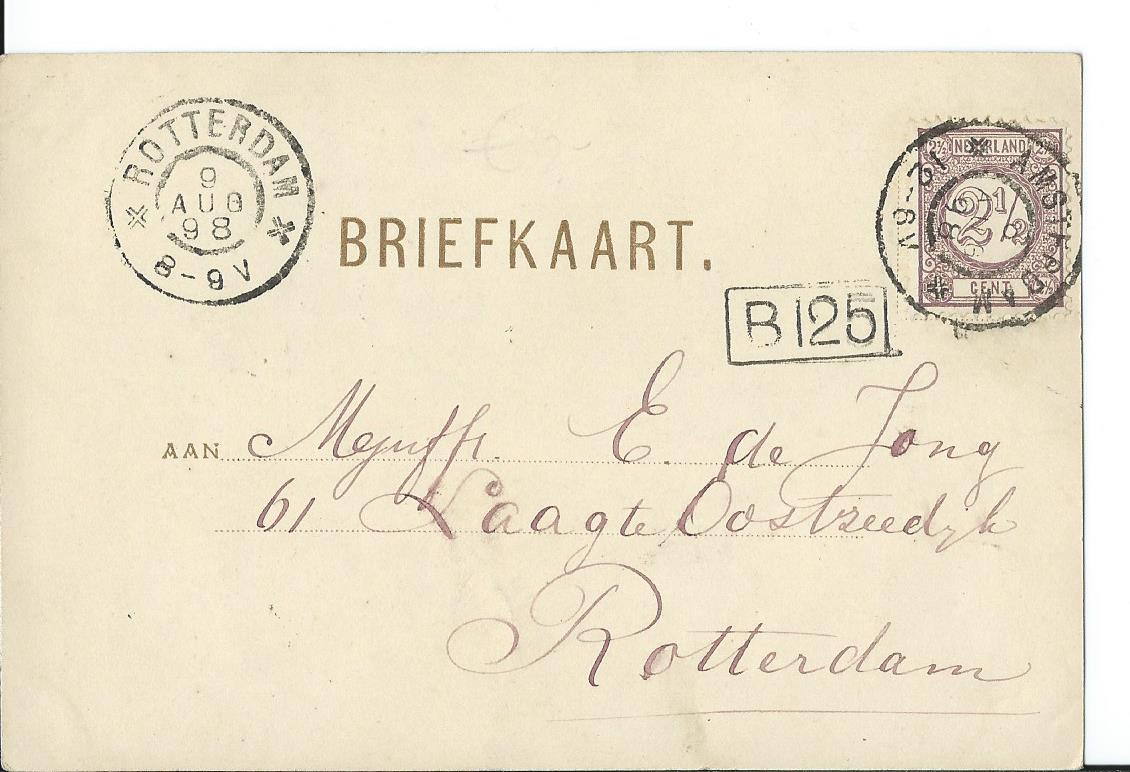 ROTTERDAM
9
AUG
98
8-9V
BRIEFKAART.
2½ NEDERLAND 2½
2½
CENT
AMSTERDAM
12-8V
98
B125
AAN Mejuffr. E. de Jong
61 Laagte Oostzeedijk
Rotterdam